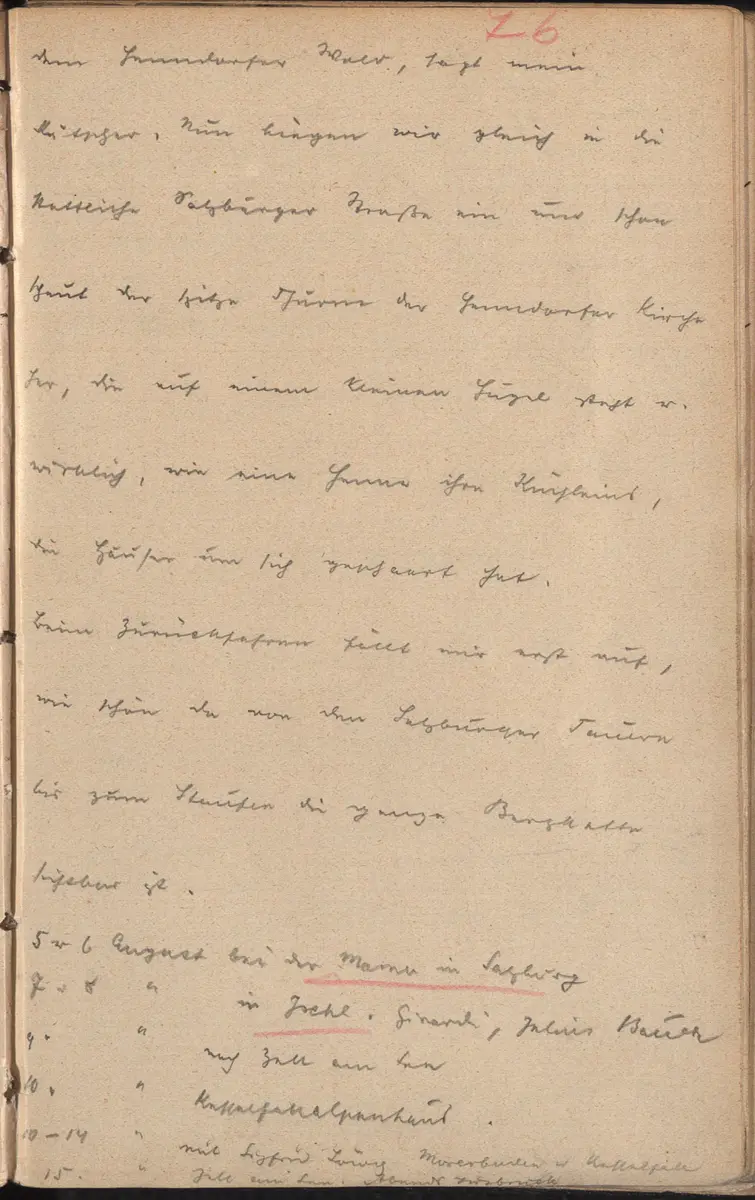 76
dem Henndorfer Wald, sagt mein
Kutscher. Nun biegen wir gleich in die
stattliche Salzburger Straße ein und schon
schaut der spitze Thurm der Henndorfer Kirche
her, die auf einem kleinen Hügel steht u.
wirklich, wie eine Henne ihre Küchleins,
die Häuser um sich geschaart hat.
Beim Zurückfahren fällt mir erst auf,
wie schön da von den Salzburger Tauern
bis zum Staufen die ganze Bergkette
sichtbar ist.
5 u 6 August bei der Mama in Salzburg
7 u 8 " in Ischl. Girardi, Julius Bauer
9. " nach Zell am See
10. " Kesselfallalpenhaus.
10–14 " mit Sigfrid Löwy Moserboden u Kesselfall
15. " Zell am See. Abends Innsbruck